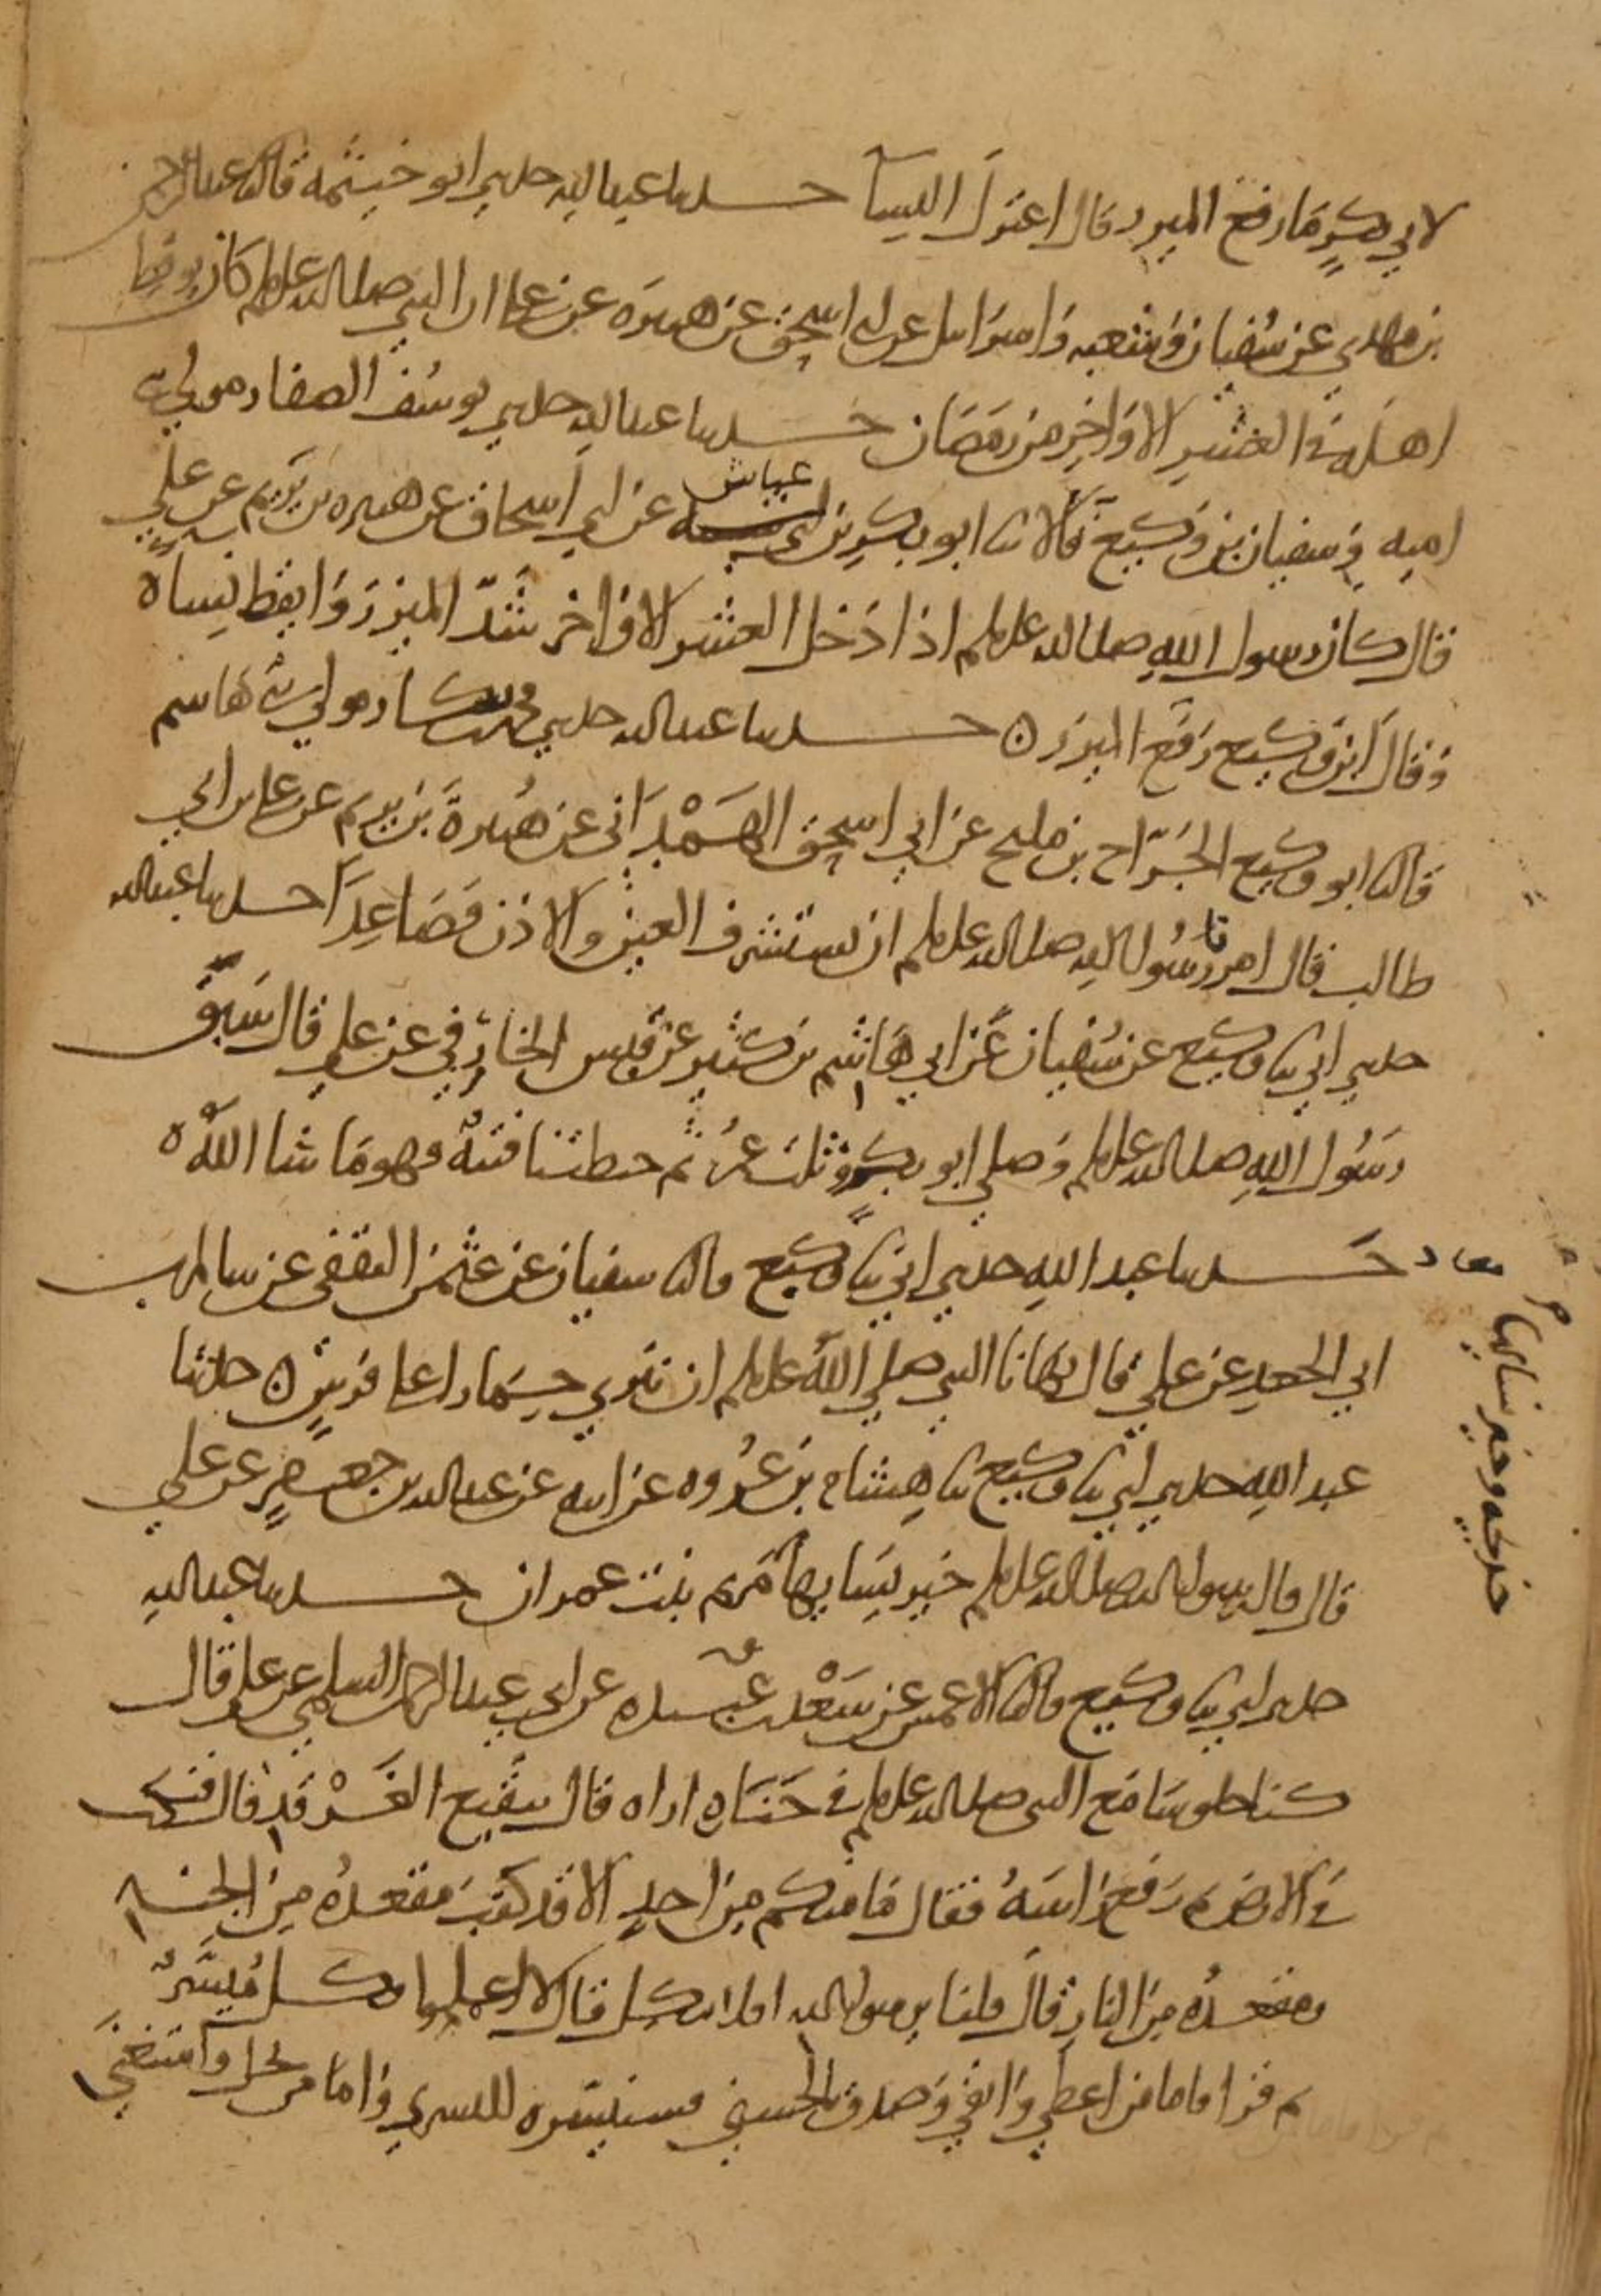 لابي بكر ما رفع الميزر قال اعتزل النسا حدثنا عبد الله حدثني ابو خيثمة قال ثنا عبد الرحمن
بن مهدي عن سفيان وشعبه واسرائيل عن ابي اسحق عن هبيره عن علي ان النبي صلى الله عليه وسلم كان يوقظ
اهله في العشر الاواخر من رمضان حدثنا عبد الله حدثني يوسف الصفار مولى بني
اميه وسفيان بن وكيع قالا ثنا ابو بكر بن عياش عن ابي اسحاق عن هبيره بن يريم عن علي
قال كان رسول الله صلى الله عليه وسلم اذا دخل العشر الاواخر شد الميزر وايقظ نساه
وقال ابن وكيع رفع الميزر ه حدثنا عبد الله حدثني محمد بن بكار مولى بني هاشم
قال ثنا ابو وكيع الجراح بن مليح عن ابي اسحق الهمداني عن هبيرة بن يريم عن علي بن ابي
طالب قال امرنا رسول الله صلى الله عليه وسلم ان نستشرف العين والاذن فصاعدا حدثنا عبد الله
حدثني ابي ثنا وكيع عن سفيان عن ابي هاشم بن كثير عن قيس الخارفي عن علي قال سبق
رسول الله صلى الله عليه وسلم وصلى ابو بكر وثلث عمر ثم خبطتنا فتنة فهو ما شا الله ه
حدثنا عبد الله حدثني ابي ثنا وكيع قال ثنا سفيان عن عثمن الثقفي عن سالم بن
ابي الجعد عن علي قال نهانا النبي صلى الله عليه وسلم ان ننزي حمارا على فرس ه حدثنا
عبد الله حدثني ابي ثنا وكيع ثنا هشام بن عروه عن ابيه عن عبد الله بن جعفر عن علي
قال قال رسول الله صلى الله عليه وسلم خير نسايها مريم بنت عمران حدثنا عبد الله
خديجه وخير نسايها
حدثني ابي ثنا وكيع قال ثنا الاعمش عن سعد بن عبيده عن ابي عبد الرحمن السلمي عن علي قال
كنا جلوسا مع النبي صلى الله عليه وسلم في جنازه اراه قال ببقيع الغرقد قال فنكت
في الارض ثم رفع راسه فقال ما منكم من احد الا قد كتب مقعده من الجنه
ومقعده من النار قال قلنا يا رسول الله افلا نتكل قال لا اعملوا فكل ميسر
ثم قرا فاما من اعطى واتقى وصدق بالحسنى فسنيسره لليسرى واما من بخل واستغنى